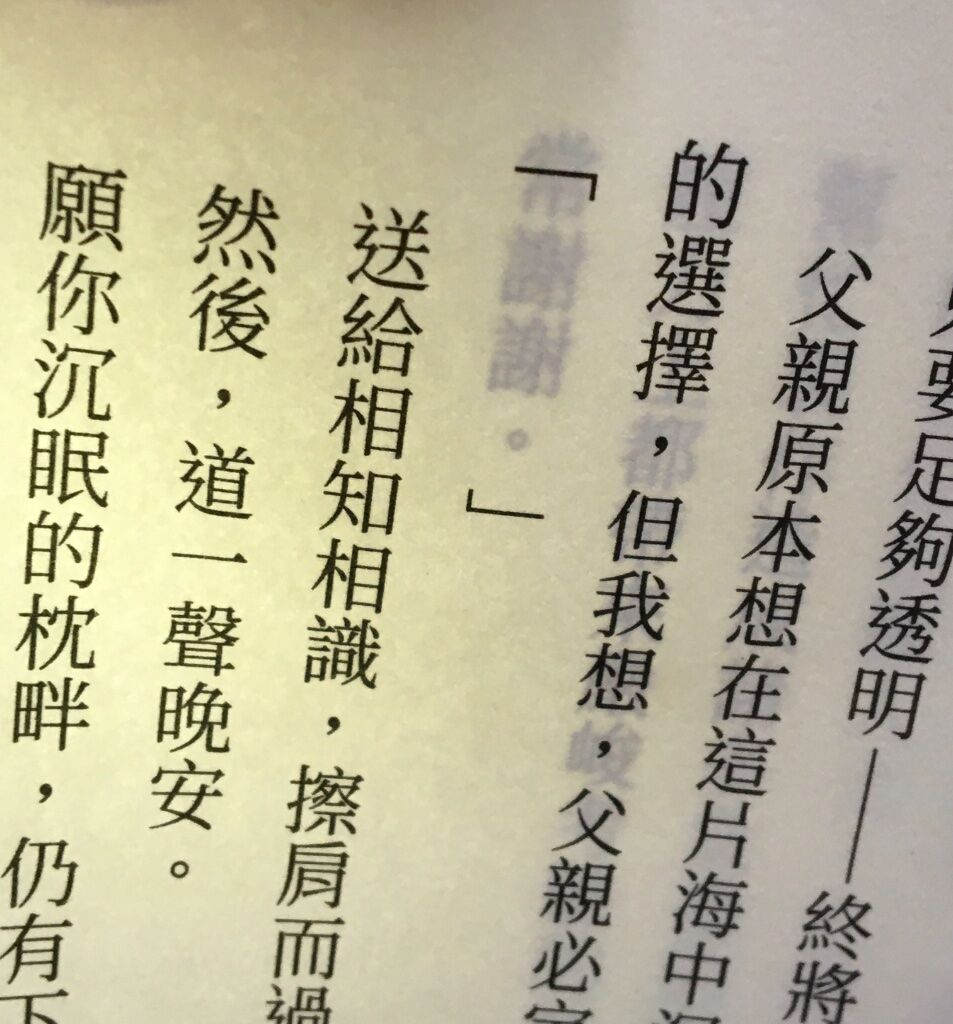 要足夠透明——終將
父親原本想在這片海中
的選擇，但我想，父親必
「　　　」
送給相知相識，擦肩而過
然後，道一聲晚安。
願你沉眠的枕畔，仍有下